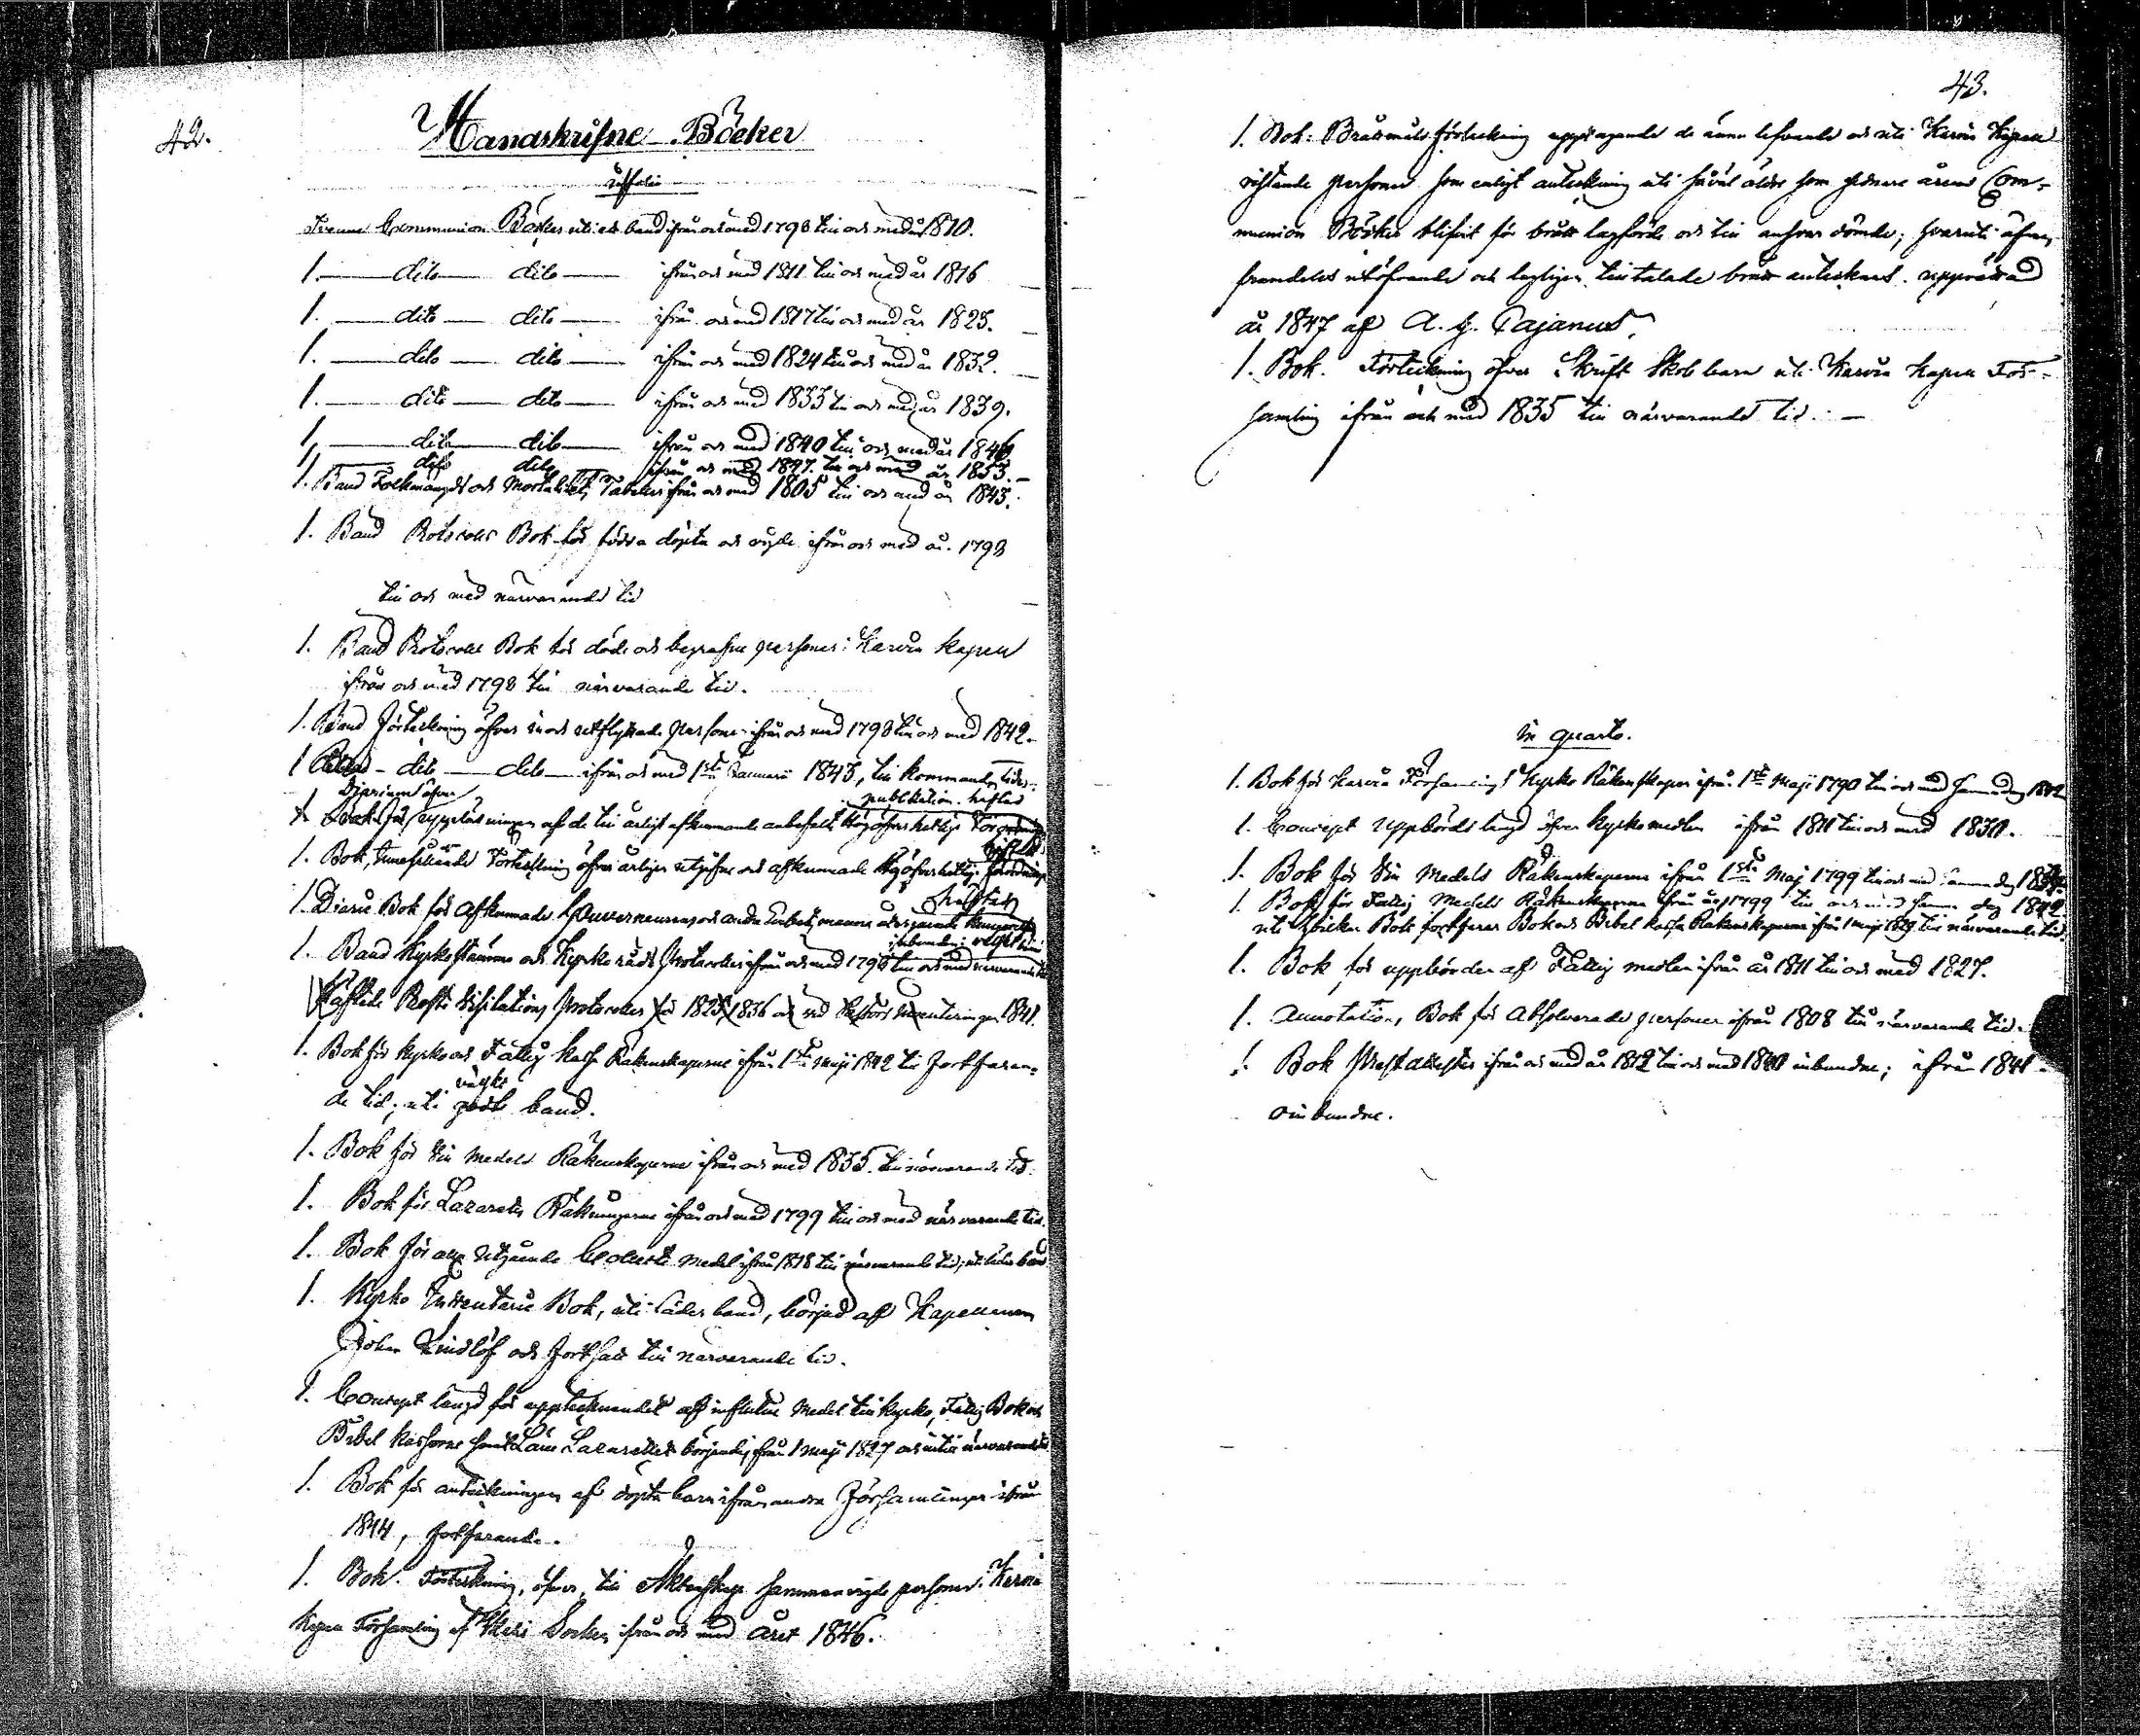 42.
Handskrifne Böcker
in folio
Trenne Communion Böcker uti ett band ifrån och med 1798 till och med år 1810.
1. dito dito ifrån och med 1811 till och med år 1816
1. dito dito ifrån och med 1817 till och med år 1823.
1. dito dito ifrån och med 1824 till och med år 1832.
1. dito dito ifrån och med 1833 till och med år 1839.
1. dito dito ifrån och med 1840 till och med år 1846
1. dito dito ifrån och med 1847. till och med år 1853.
1. Band Folkmängds och Mortalitets Tabeller ifrån och med 1805 till och med år 1843.
1. Band Protocolls Bok för födda döpta och vigde ifrån och med år 1798
till och med närvarande tid
1. Band Protocolls Bok för döde och begrafne personer i Karvia Kapell
ifrån och med 1798 till närvarande tid.
1. Band Förteckning öfver in och utflyttade Personer ifrån och med 1798 till och med 1842.
1 dito dito ifrån och med 1sta Januari 1843, till kommande tider.
Diarium öfver publikation. häftad
1. Bok för uppläsningen af de till årligt afkunnande anbefallte Högöfverhetliga Förordningar
1. Bok, innefattande Förteckning öfver årligen utgifne och afkunnade Högöfverhetliga Förordningar
häftad
1. Diarii Bok för Afkunnade Gouverneurens och andra Embetsmanna
inbunden
1. Band Kyrkostämmo och Kyrkoråds Protocoller ifrån och med 1798 till och med närvarande tid
Häftade Visitations Protocoller för 1825, 1836 och 1841.
1. Bok för Kyrko och Fattig Kassa Räkenskaperne ifrån 1sta Maji 1842 till fortfaran-
de tid; uti band.
1. Bok för Vin Medels Räkenskaperne ifrån och med 1835. till närvarande tid.
1. Bok för Lazaretts Räkningarne ifrån och med 1799 till och med närvarande tid.
1. Bok för alla Utgående Collect Medel ifrån 1818 till närvarande tid; uti läder band
1. Kyrko Inventarii Bok, uti läder band, börjad af Kapellanen
Johan Lindlöf och fortsatt till närvarande tid.
1. Concept längd för upptecknandet af influtne Medel till Kyrko, Fattig Bok och
Bibel Kassorne samt Läns Lazarettet börjandes från 1 Maji 1827 och intill närvarande
1. Bok för anteckningen af döpta barn ifrån andra Församlingar ifrån
1844, fortfarande.
1. Bok. Förteckning, öfver, till Äktenskap sammanvigde personer i Karvia
Kapell Församling af Ikalis Socken ifrån och med Året 1846.
43.
1. Bok. Brottmåls förteckning upptagande de ännu lefvande och uti Karvia Kapell
vistande personer som enligt anteckning uti såväl äldre som sednare årens Com-
munion Böcker blifvit för brott lagförde och till answar dömde; hvaruti äfven
framdeles utöfvande och lagligen tilltalade brott antecknas. upprättad
år 1847 af A. G. Pajanus.
1. Bok. Förteckning öfver Skrift Skol barn uti Karvia Kapell För-
samling ifrån och med 1835 till närvarande tid.
in quarto.
1. Bok för Karvia Församlings Kyrko Räkenskaper ifrån 1sta Maji 1790 till och med samma dag 1842
1. Concept Uppbörds längd öfver Kyrkomedlen ifrån 1811 till och med 1830.
1. Bok för Vin Medels Räkenskaperne ifrån 1sta Maj 1799 till och med samma dag
1. Bok för Fattig Medels Räkenskaperne ifrån år 1799 till och med samma dag 1842
uti hvilken Bok fortfarer Bok och Bibel Kassa Räkenskaperne ifrån 1 Maji 1829 till närvarande tid.
1. Bok för uppbörden af Fattig medlen ifrån år 1811 till och med 1827.
1. Annotations Bok för Absolverade personer ifrån 1808 till närvarande tid.
1. Bok Prestattester ifrån och med år 1812 till och med 1840 inbundne; ifrån 1841
oinbundne.